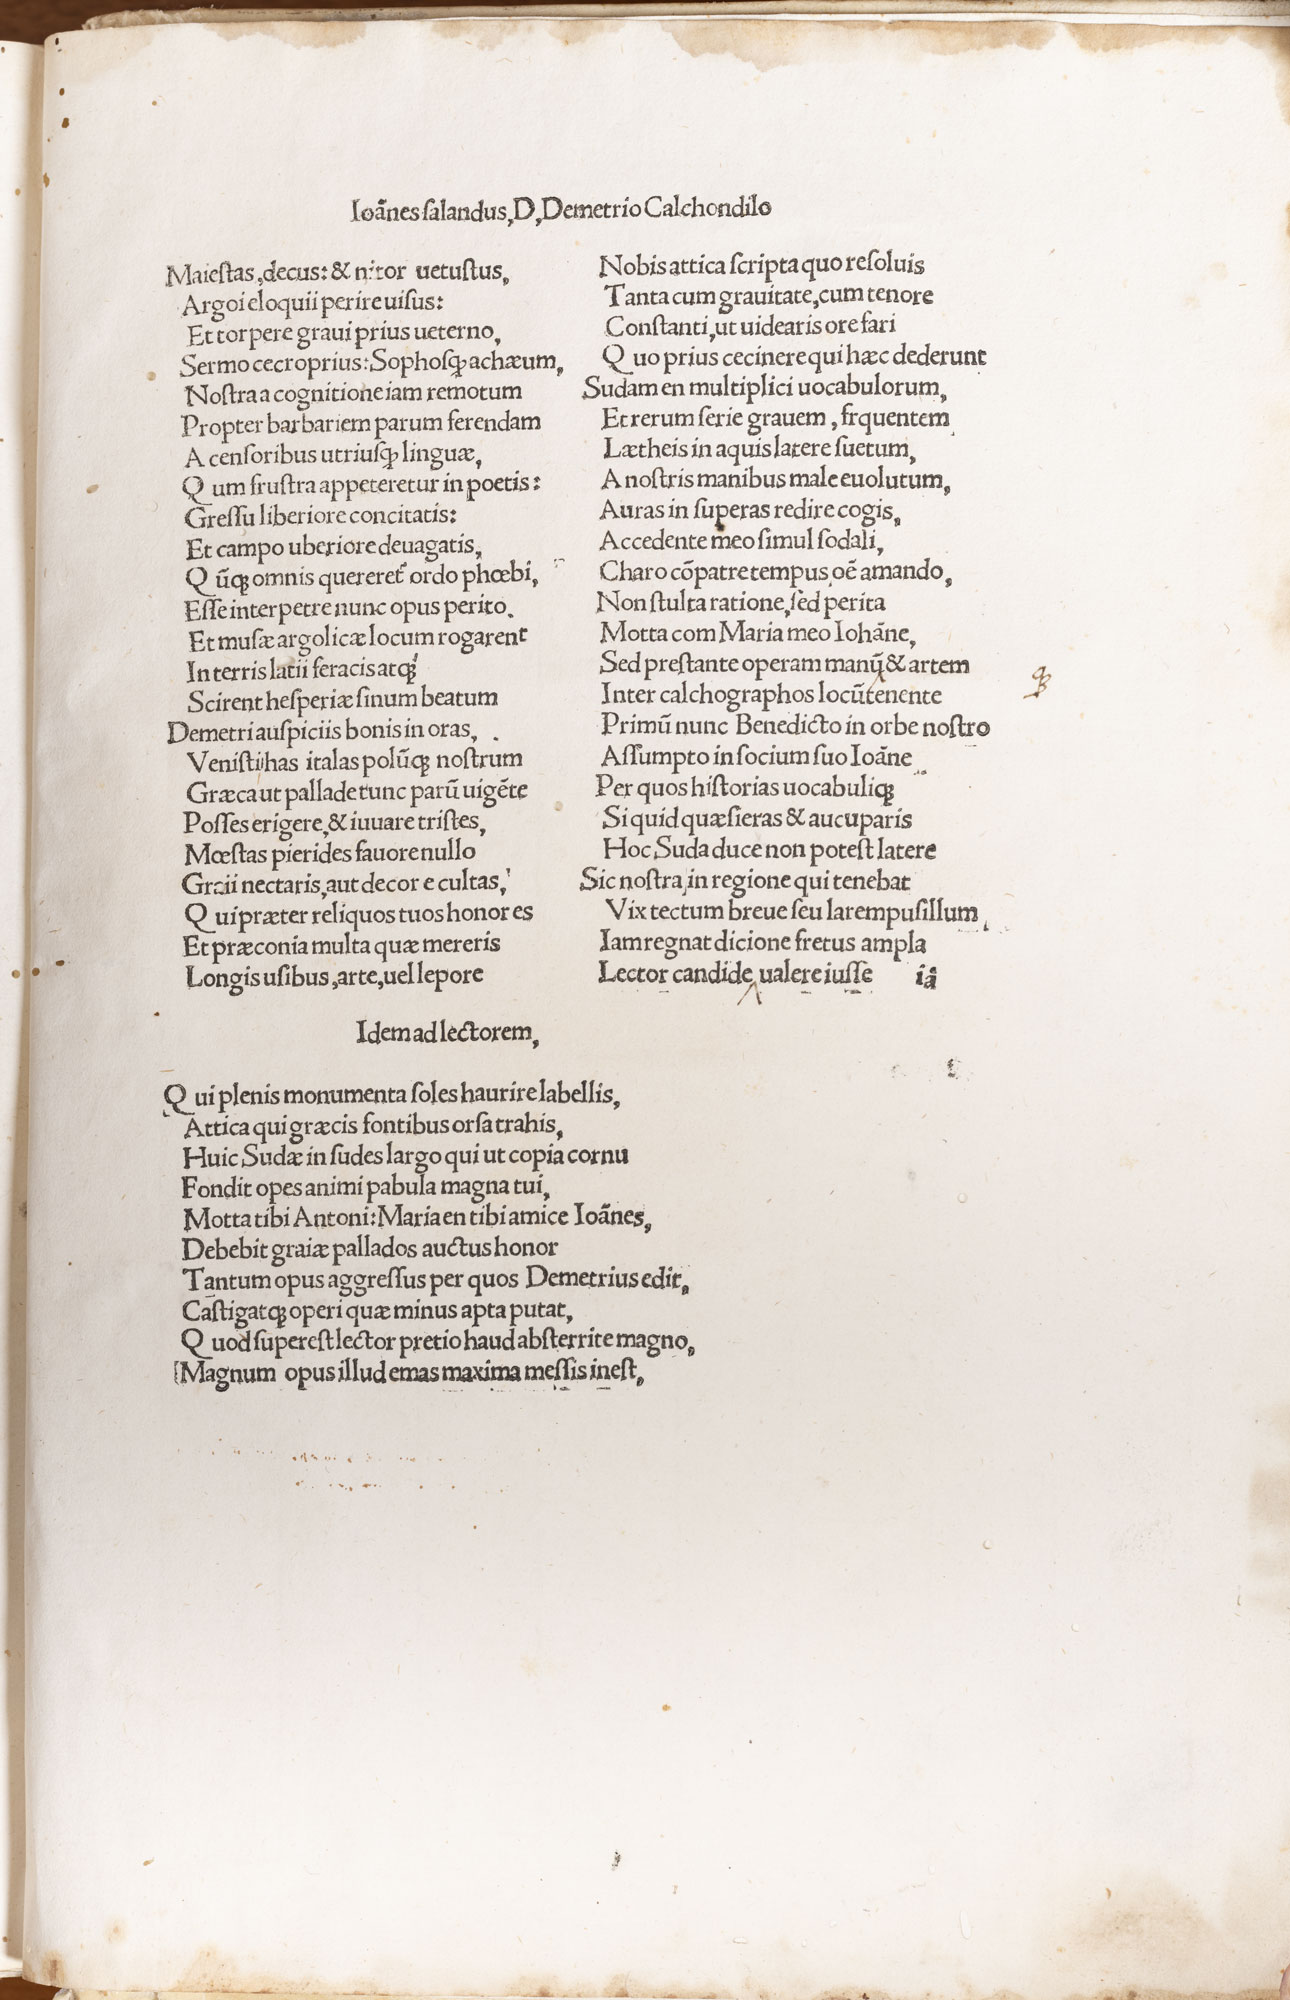 Ioãnes ſalandus, D, Demetrio Calchondilo
Maieſtas, decus: & nitor uetuſtus,
Argoi eloquii perire uiſus:
Et torpere graui prius ueterno,
Sermo cecroprius: Sophoſqꝫ achæum,
Noſtra a cognitione iam remotum
Propter barbariem parum ferendam
A cenſoribus utriuſqꝫ linguæ,
Qum fruſtra appeteretur in poetis:
Greſſu liberiore concitatis:
Et campo uberiore deuagatis,
Qũqꝫ omnis quereret᷑ ordo phœbi,
Eſſe interpetre nunc opus perito.
Et muſæ argolicæ locum rogarent
In terris latii feracis atqꝫ
Scirent heſperiæ ſinum beatum
Demetri auſpiciis bonis in oras,
Veniſti has italas polũqꝫ noſtrum
Græca ut pallade tunc parũ uigẽte
Poſſes erigere, & iuuare triſtes,
Mœſtas pierides fauore nullo
Graii nectaris, aut decore cultas,
Qui præter reliquos tuos honores
Et præconia multa quæ mereris
Longis uſibus, arte, uel lepore
Nobis attica ſcripta quo reſoluis
Tanta cum grauitate, cum tenore
Conſtanti, ut uidearis ore fari
Quo prius cecinere qui hæc dederunt
Sudam en multiplici uocabulorum,
Et rerum ſerie grauem, frquentem
Lætheis in aquis latere ſuetum,
A noſtris manibus male euolutum,
Auras in ſuperas redire cogis,
Accedente meo ſimul ſodali,
Charo cõpatre tempus oẽ amando,
Non ſtulta ratione, ſed perita
Motta com Maria meo Iohãne,
Sed preſtante operam manũ & artem
qꝫ
Inter calchographos locũ tenente
Primũ nunc Benedicto in orbe noſtro
Aſſumpto in ſocium ſuo Ioãne
Per quos hiſtorias uocabuliqꝫ
Si quid quæſieras & aucuparis
Hoc Suda duce non poteſt latere
Sic noſtra in regione qui tenebat
Vix tectum breue ſeu larem puſillum,
Iam regnat dicione fretus ampla
Lector candide, ualere iuſſe iã
Idem ad lectorem,
Qui plenis monumenta ſoles haurire labellis,
Attica qui græcis fontibus orſa trahis,
Huic Sudæ in ſudes largo qui ut copia cornu
Fondit opes animi pabula magna tui,
Motta tibi Antoni: Maria en tibi amice Ioãnes,
Debebit graiæ pallados auctus honor
Tantum opus aggreſſus per quos Demetrius edit,
Caſtigatqꝫ operi quæ minus apta putat,
Quod ſupereſt lector pretio haud abſterrite magno,
Magnum opus illud emas maxima meſſis ineſt,